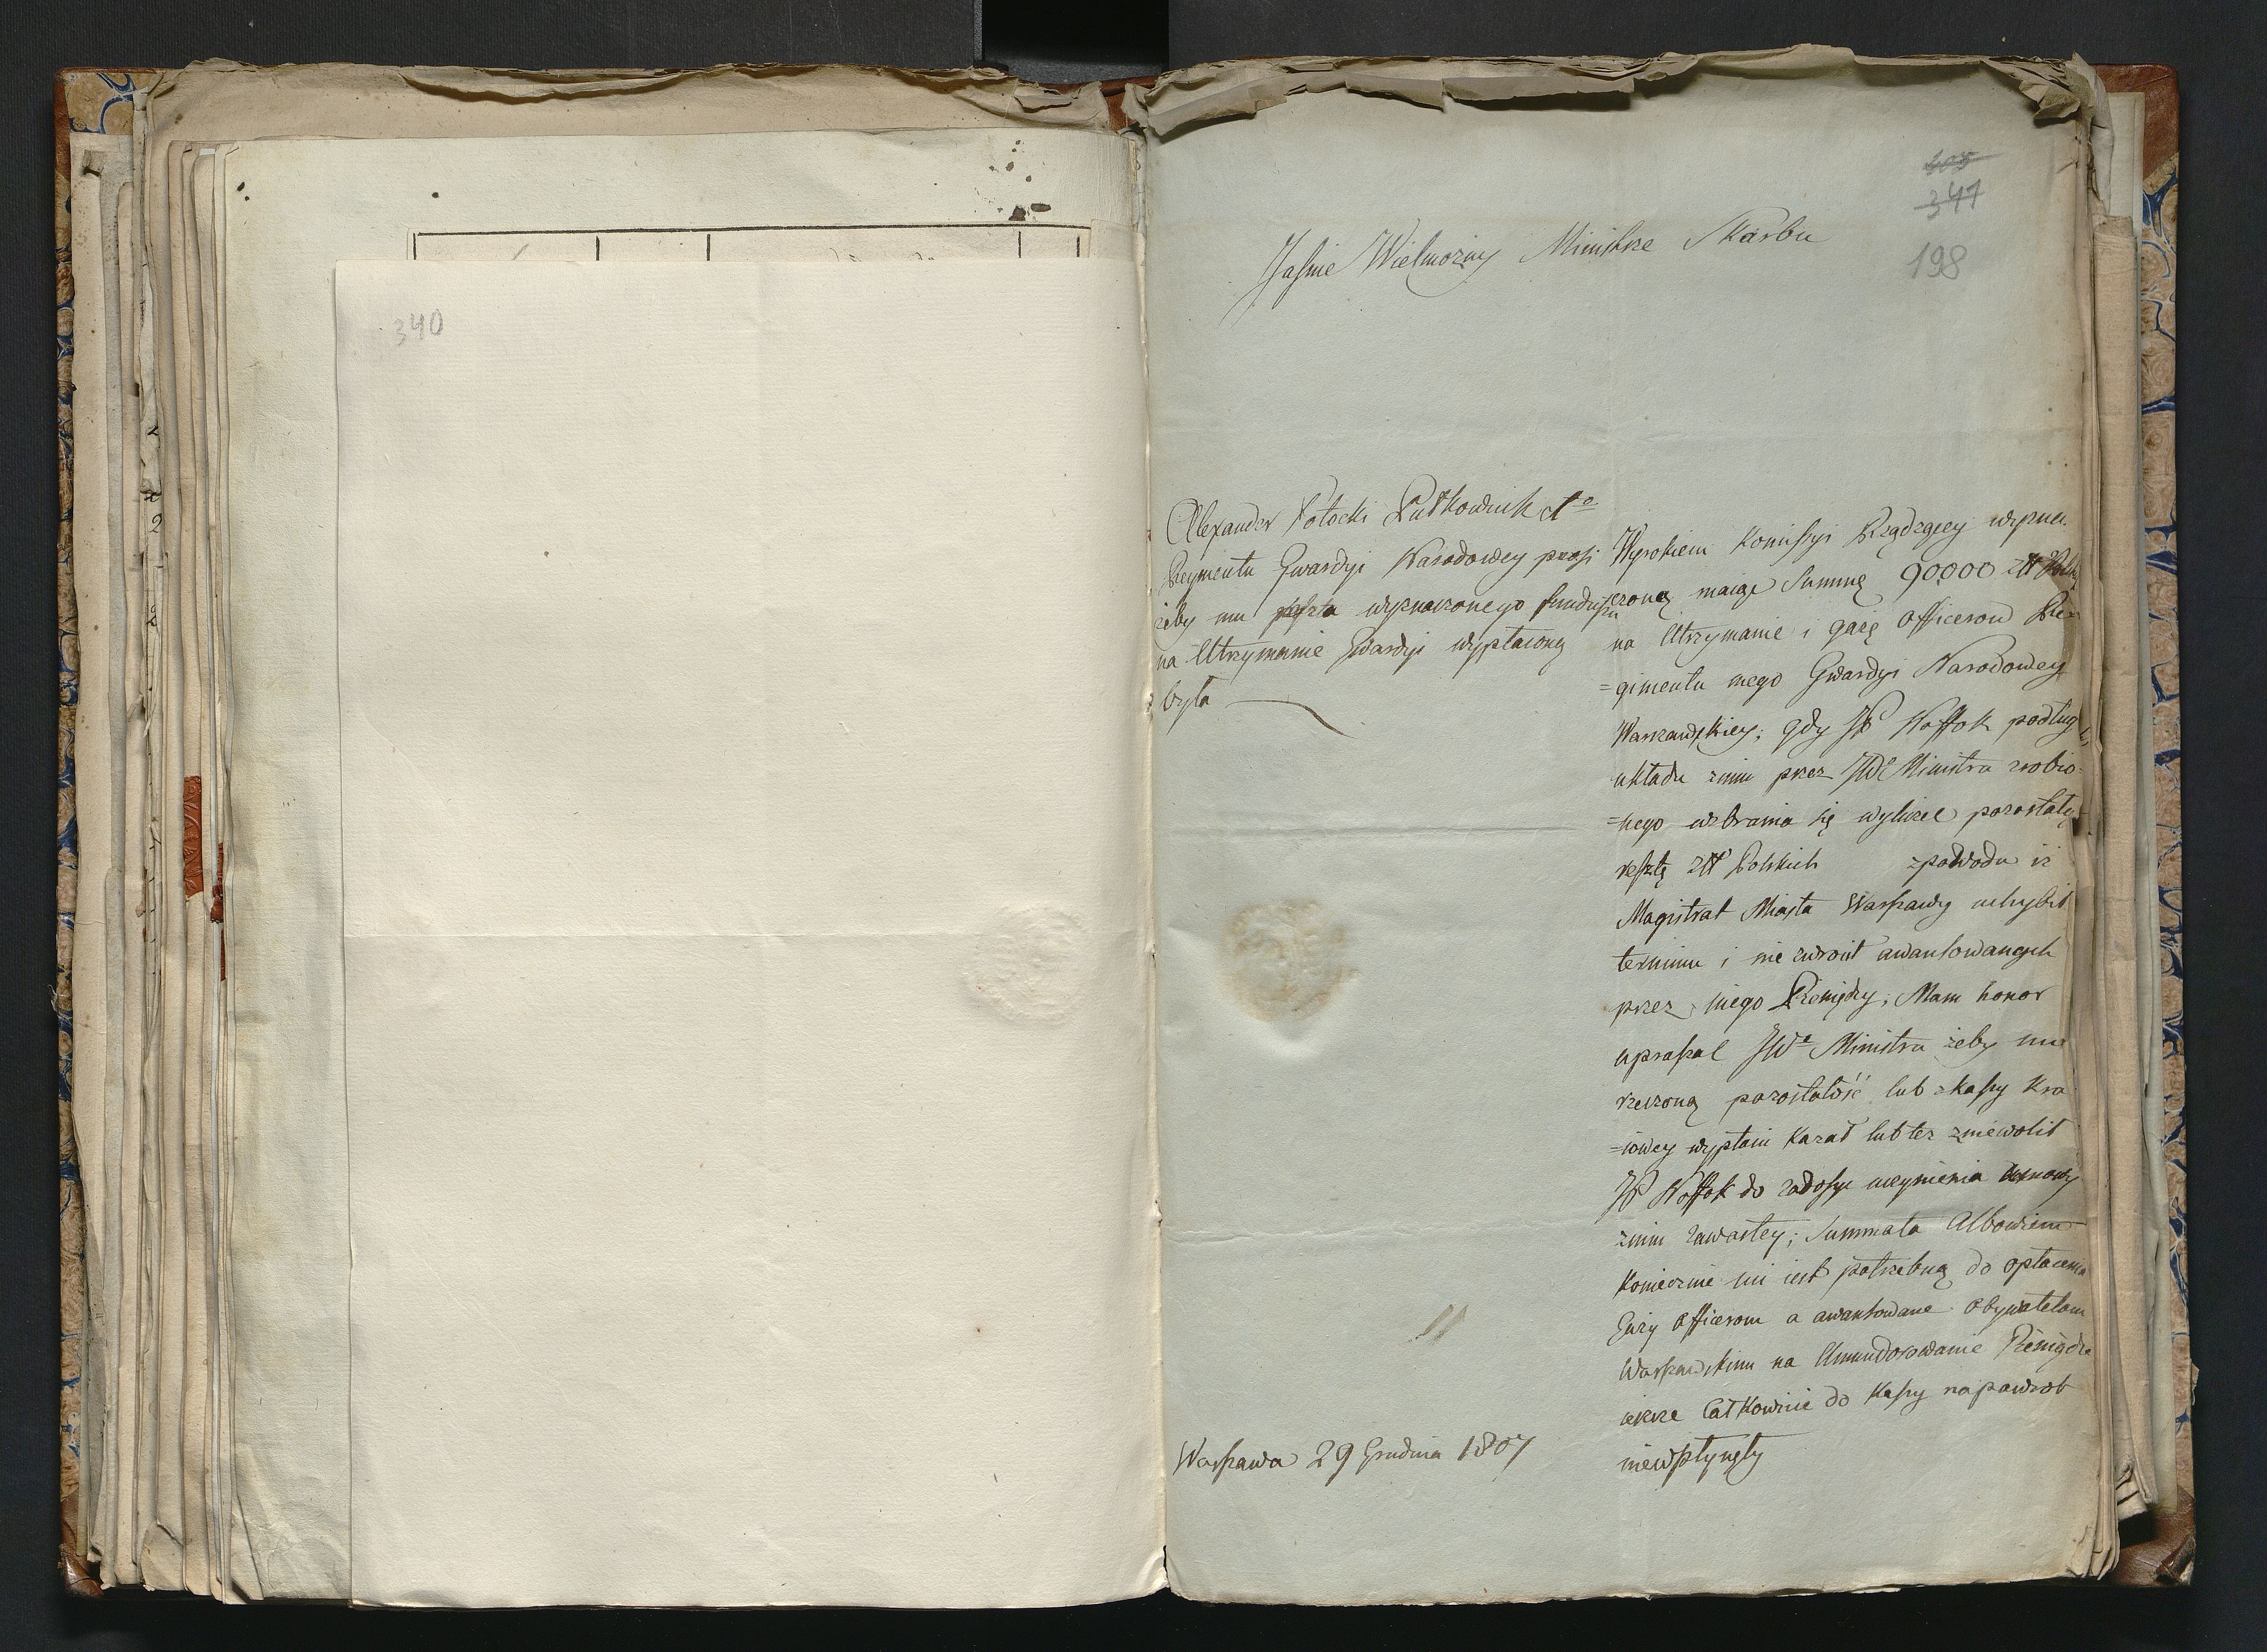 340
347
198
Jaśnie Wielmożny Ministrze Skarbu
Alexander Potocki Pułkownik 1o
Regimentu Gwardyi Narodowey prosi
żeby mu reszta wyznaczonego funduszu
na Utrzymanie Gwardyi wypłaconą
była
Warszawa 29 Grudnia 1807
Wyrokiem Komissyi Rządzącey wyzna
czoną maiąc Summę 90,000 złł Polch
na Utrzymanie i gażę Officerow Re=
=gimentu mego Gwardyi Narodowey
Warszawskiey; gdy JP Noffok podług
układu znim przez JWo Ministra zrobio=
=nego wzbrania się wyliczć pozostałą
resztę złł Polskich zpowodu iż
Magistrat Miasta Warszawy uchybił
terminu i nie zwrócił awansowanych
przez niego Pieniędzy; Mam honor
upraszać JWo Ministra żeby mi
rzeczoną pozostałość lub z kassy Kra
=iowey wypłacić kazał lub też zniewolił
JP Noffok do zadosyć uczynienia umowy
znim zawartey; Summata Albowiem
koniecznie mi iest potrzebną do opłacenia
Gaży Officerom a awansowane Obywatelom
Warszawskim na Umundorowanie Pieniądze
ieszcze Całkowicie do Kassy napowrót
niewpłynęły